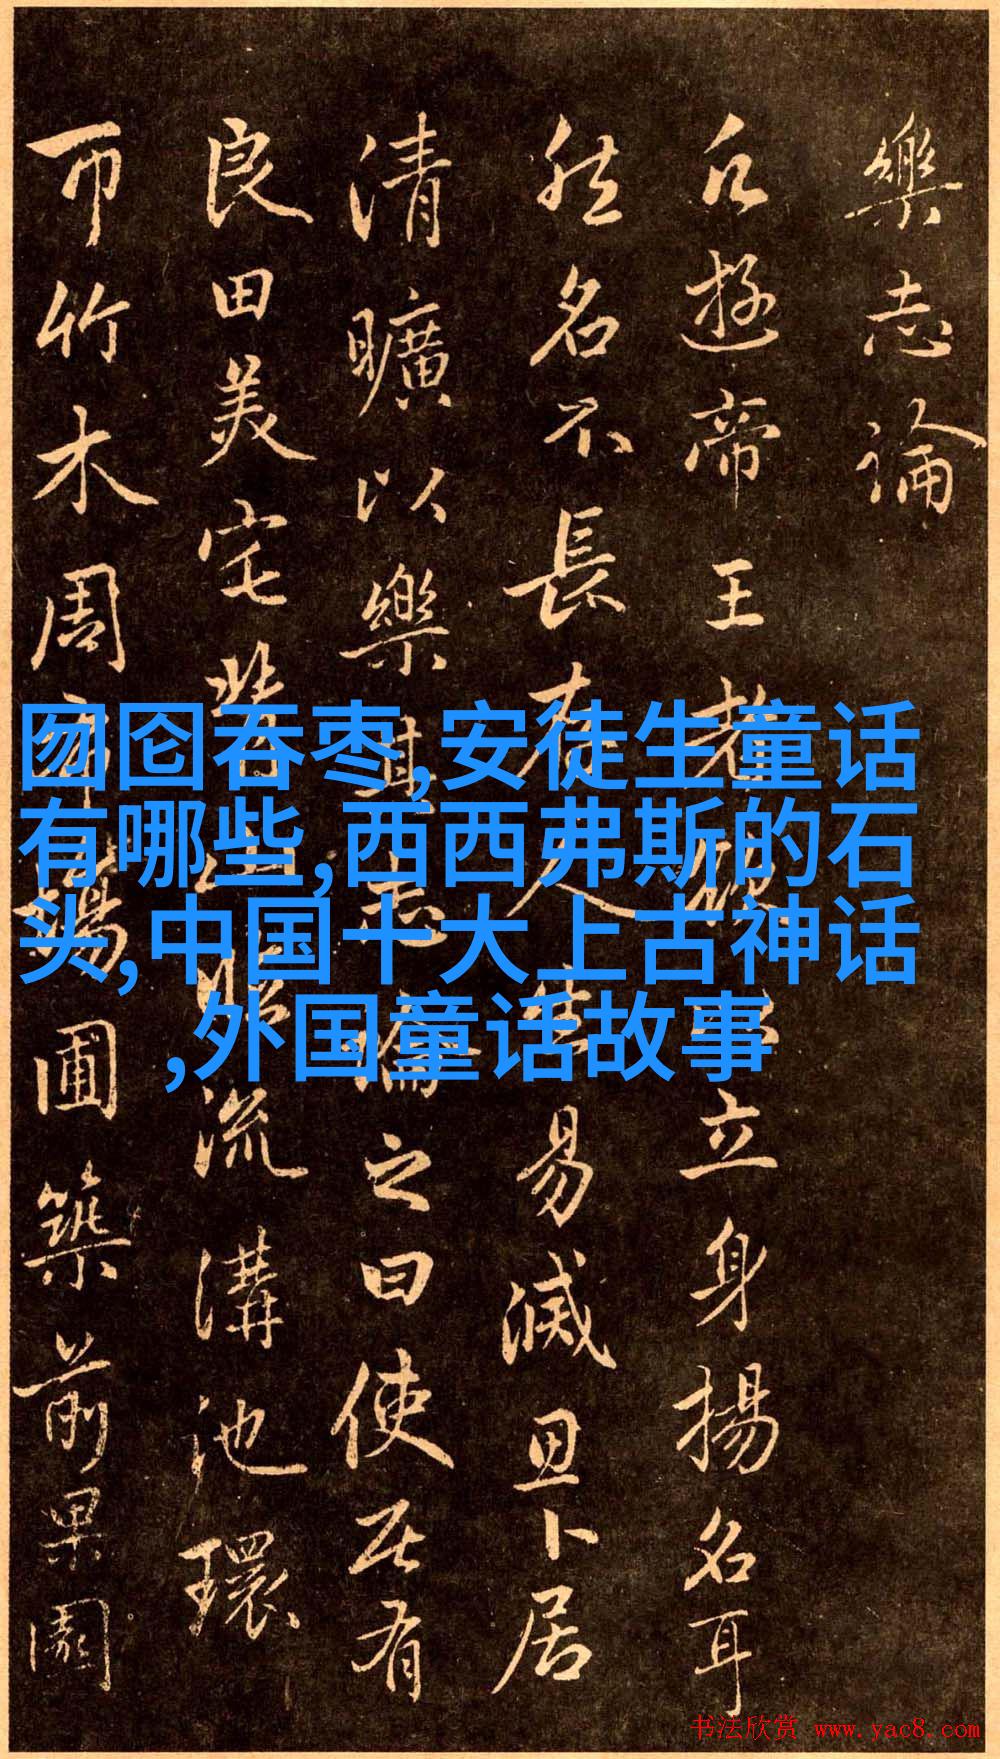 樂志論
凡遊帝王者
立身揚名耳
然名不長存人
易滅思卜居
清曠以樂其志
論之曰使居有
良田美宅背山臨
流溝池環
帀竹木周布場
圃築前果園
囫囵吞枣,安徒生童话
有哪些,西西弗斯的石
头,中国十大上古神话
,外国童话故事
书法欣赏 www.yac8.com